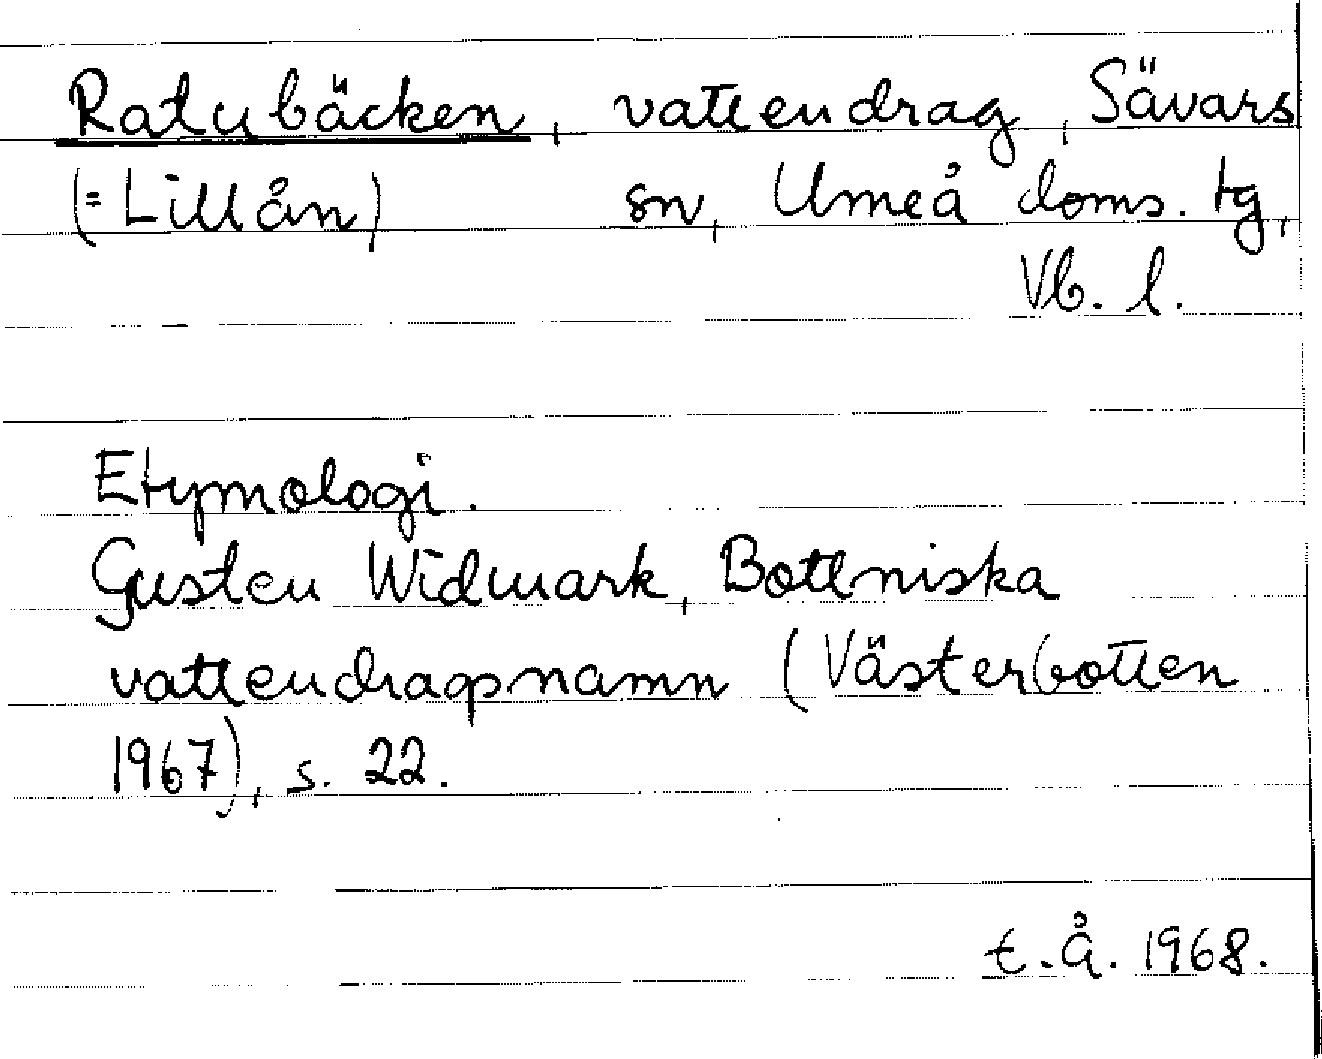 Ratubäcken, vattendrag, Sävars
(= Lillån) sn, Umeå doms. tg,
Vb. l.
Etymologi.
Gusten Widmark, Bottniska
vattendragsnamn (Västerbotten
1967), s. 22.
t.Å. 1968.